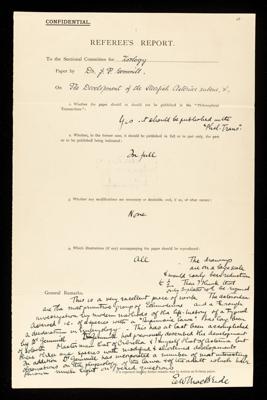 CONFIDENTIAL.
REFEREE'S REPORT.
To the Sectional Committee for Zoology
Paper by Dr. J. F. Gemmill
On The Development of the Starfish Asterias rubens, L.
1. Whether the paper should or should not be published in the "Philosophical
Transactions".
Yes it should be published with
"Phil. Trans"
2. Whether, in the former case, it should be published in full or in part only, the part
or parts being indicated:
In full
3. Whether any modifications are necessary or desirable, and, if so, of what nature:
None
4. Which illustrations (if any) accompanying the paper should be reproduced:
All
The drawings
are on a large scale
& would easily bear reduction
to ½. Thus I think that
only plates will be required
General Remarks. This is a very excellent piece of work. The Asteroidea
are the most primitive group of Echinoderms and a thorough
investigation by modern methods of the life-history of a typical
Asteroid i.e. of species with a Bipinnaria larva has long been
a desideratum in Embryology. This has at last been accomplished
by Dr Gemmill previously described the development
of Solaster Masterman that of Cribrella & myself that of Asterina but
these three are species with modified & shortened developments
In addition Dr Gemmill has incorporated a number of most interesting
observations on the physiology of the larva & of the adult which have
thrown much light on vexed questions
E. W. MacBride